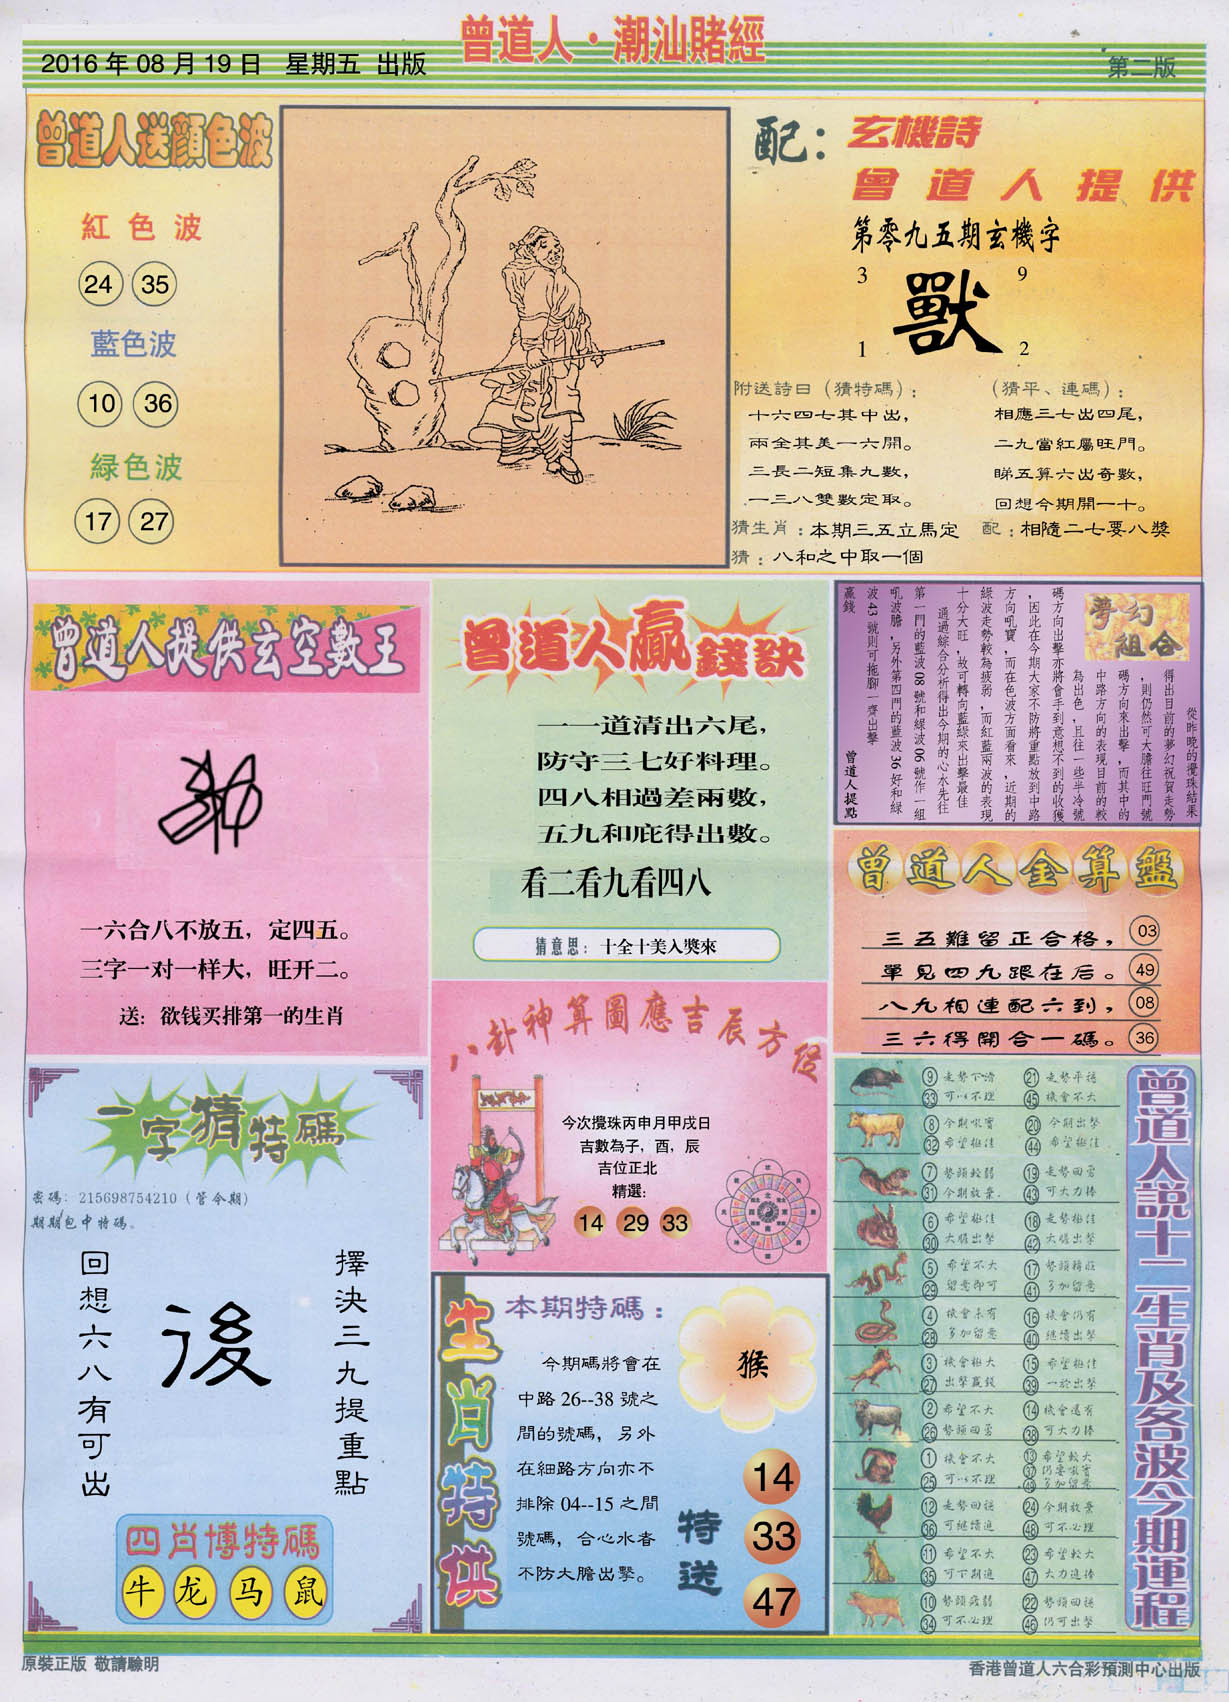 曾道人·潮汕賭經
2016年08月19日 星期五 出版
第二版
曾道人送顏色波
紅色波
24 35
藍色波
10 36
緑色波
17 27
配：玄機詩
曾道人提供
第零九五期玄機字
3 9
獸
1 2
附送詩曰（猜特碼）：
十六四七其中出，
兩全其美一六開。
三長二短集九數，
一三八雙數定取。
（猜平、連碼）：
相應三七出四尾，
二九當紅屬旺門。
睇五算六出奇數，
回想今期開一十。
猜生肖：本期三五立馬定 配：相隨二七要八獎
猜：八和之中取一個
曾道人提供玄空數王
一六合八不放五，定四五。
三字一对一样大，旺开二。
送：欲钱买排第一的生肖
曾道人贏錢訣
一一道清出六尾，
防守三七好料理。
四八相過差兩數，
五九和庇得出數。
看二看九看四八
猜意思：十全十美入獎來
夢幻組合
從昨晚的攪珠結果
得出目前的夢幻祝賀走勢
，則仍然可大膽往旺門號
碼方向來出擊，而其中的
中路方向的表現目前的較
為出色，且往一些半冷號
碼方向出擊亦將會手到意想不到的收獲
，因此在今期大家不防將重點放到中路
方向吼寶，而在色波方面看來，近期的
綠波走勢較為疲弱，而紅藍兩波的表現
十分大旺，故可轉向藍綠來出擊最佳
通過綜合分析得出今期的心水先往
第一門的藍波08號和綠波06號作一組
吼波膽，另外第四門的藍波36好和綠
波43號則可拖腳一齊出擊
贏錢 曾道人提點
曾道人金算盤
三五難留正合格， 03
單見四九跟在后。 49
八九相連配六到， 08
三六得開合一碼。 36
八卦神算圖應吉辰方位
今次攪珠丙申月甲戌日
吉數為子，酉，辰
吉位正北
精選:
14 29 33
一字猜特碼
密碼：215698754210（管令期）
期期包中特碼。
擇決三九提重點
後
回想六八有可出
四肖博特碼
牛 龙 马 鼠
生肖特供
本期特碼：
今期碼將會在
中路26--38號之
間的號碼，另外
在細路方向亦不
排除04--15之間
號碼，合心水者
不防大膽出擊。
猴
特送
14
33
47
曾道人說十二生肖及各波今期運程
9 走勢下滑 21 走勢平穩
33 可以不理 45 機會不大
8 今期吼實 20 今期出擊
32 希望極佳 44 希望極佳
7 勢頭較弱 19 走勢回勇
31 今期放棄 43 可大力捧
6 希望極佳 18 走勢極佳
30 大膽出擊 42 大膽出擊
5 希望不大 17 勢頭轉旺
29 留意即可 41 多加留意
4 機會未有 16 機會仍有
28 多加留意 40 繼續出擊
3 機會極大 15 希望極佳
27 出擊贏錢 39 一於出擊
2 希望不大 14 機會還有
26 勢頭回勇 38 可大力捧
1 機會不大 13 希望較大
25 可以不理 37 仍要吼實
49 多加留意
12 走勢回穩 24 今期放棄
36 可繼續追 48 可不必理
11 希望不大 23 希望較大
35 可下期追 47 大力追捧
10 勢頭疲弱 22 勢頭回穩
34 可不必理 46 仍可出擊
原裝正版 敬請驗明
香港曾道人六合彩預測中心出版